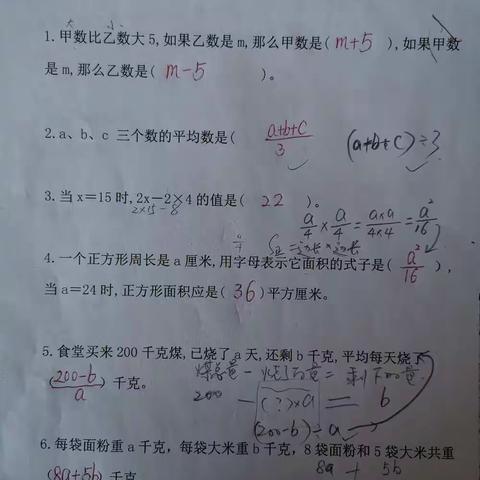 大 小
1.甲数比乙数大5,如果乙数是m,那么甲数是( m+5 ),如果甲数
是m,那么乙数是( m-5 )。
2.a、b、c 三个数的平均数是( (a+b+c)/3 (a+b+c)÷3
3.当x=15时,2x-2×4的值是( 22 )。
2×15-8
a/4 × a/4 = a×a/4×4 = a²/16
a/4 S正=边长×边长
4.一个正方形周长是a厘米,用字母表示它面积的式子是( a²/16 ),
当a=24时,正方形面积应是( 36 )平方厘米。
5.食堂买来200千克煤,已烧了a天,还剩b千克,平均每天烧了
煤总量-烧了的量=剩下的量
( (200-b)/a )千克。
200 - (?)×a = b
(200-b)÷a
6.每袋面粉重a千克,每袋大米重b千克,8袋面粉和5袋大米共重
8a + 5b
(8a+5b)千克